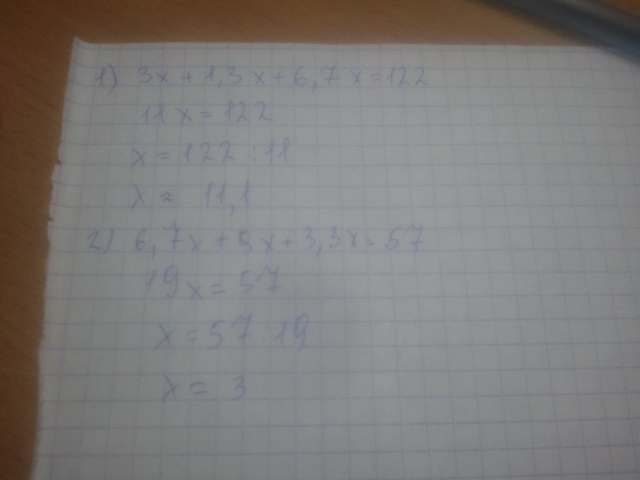 1) 3x + 1,3x + 6,7x = 122
11x = 122
x = 122 : 11
x ≈ 11,1
2) 6,7x + 9x + 3,3x = 57
19x = 57
x = 57 : 19
x = 3